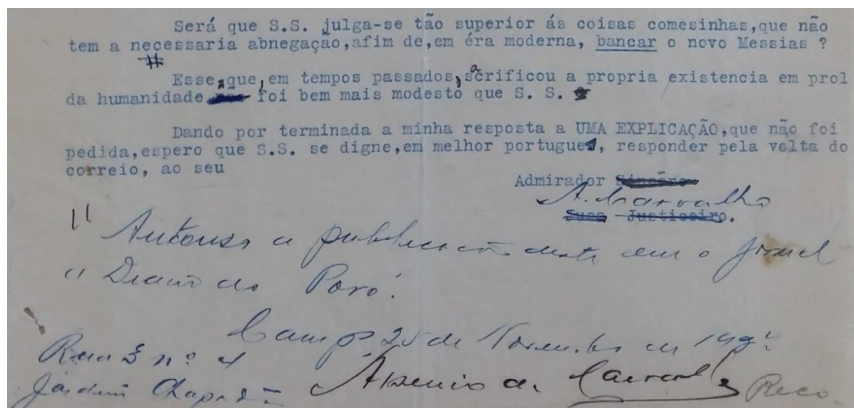 Será que S.S. julga-se tão superior ás coisas comesinhas,que não
tem a necessaria abnegação,afim de,em éra moderna, bancar o novo Messias ?
Esse,que,em tempos passados,sacrificou a propria existencia em prol
da humanidade foi bem mais modesto que S. S.
Dando por terminada a minha resposta a UMA EXPLICAÇÃO,que não foi
pedida,espero que S.S. se digne,em melhor portugues, responder pela volta do
correio, ao seu
Admirador
A. Carvalho
Justiceiro.
" Autorizo a publicação deste em o jornal
" Diario do Povo.
25 de Novembro de
Rua 3 nº 4
Jardim Chapadão de Carvalho Reco.